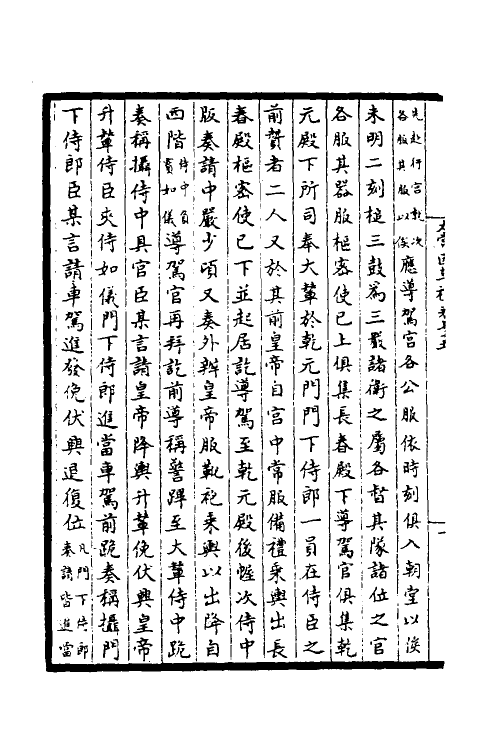 先赴行宫教次
各服其服以俟
應導駕官各公服依時刻俱入朝堂以俟
未明二刻搥三鼓爲三嚴諸衛之屬各督其隊諸位之官
各服其器服樞密使已上俱集長春殿下導駕官俱集乾
元殿下所司奉大輦於乾元門門下侍郎一員在侍臣之
前贊者二人又於其前皇帝自宮中常服備禮乘輿出長
春殿樞密使已下並起居訖導駕至乾元殿後幄次侍中
版奏請中嚴少頃又奏外辦皇帝服靴袍乘輿以出降自
西階
侍中負
寳如儀
導駕官再拜訖前導稱警蹕至大輦侍中跪
奏稱攝侍中具官臣某言請皇帝降輿升輦俛伏興皇帝
升輦侍臣夾侍如儀門下侍郎進當車駕前跪奏稱攝門
下侍郎臣某言請車駕進發俛伏興退復位
凡門下侍郎
奏請皆進當